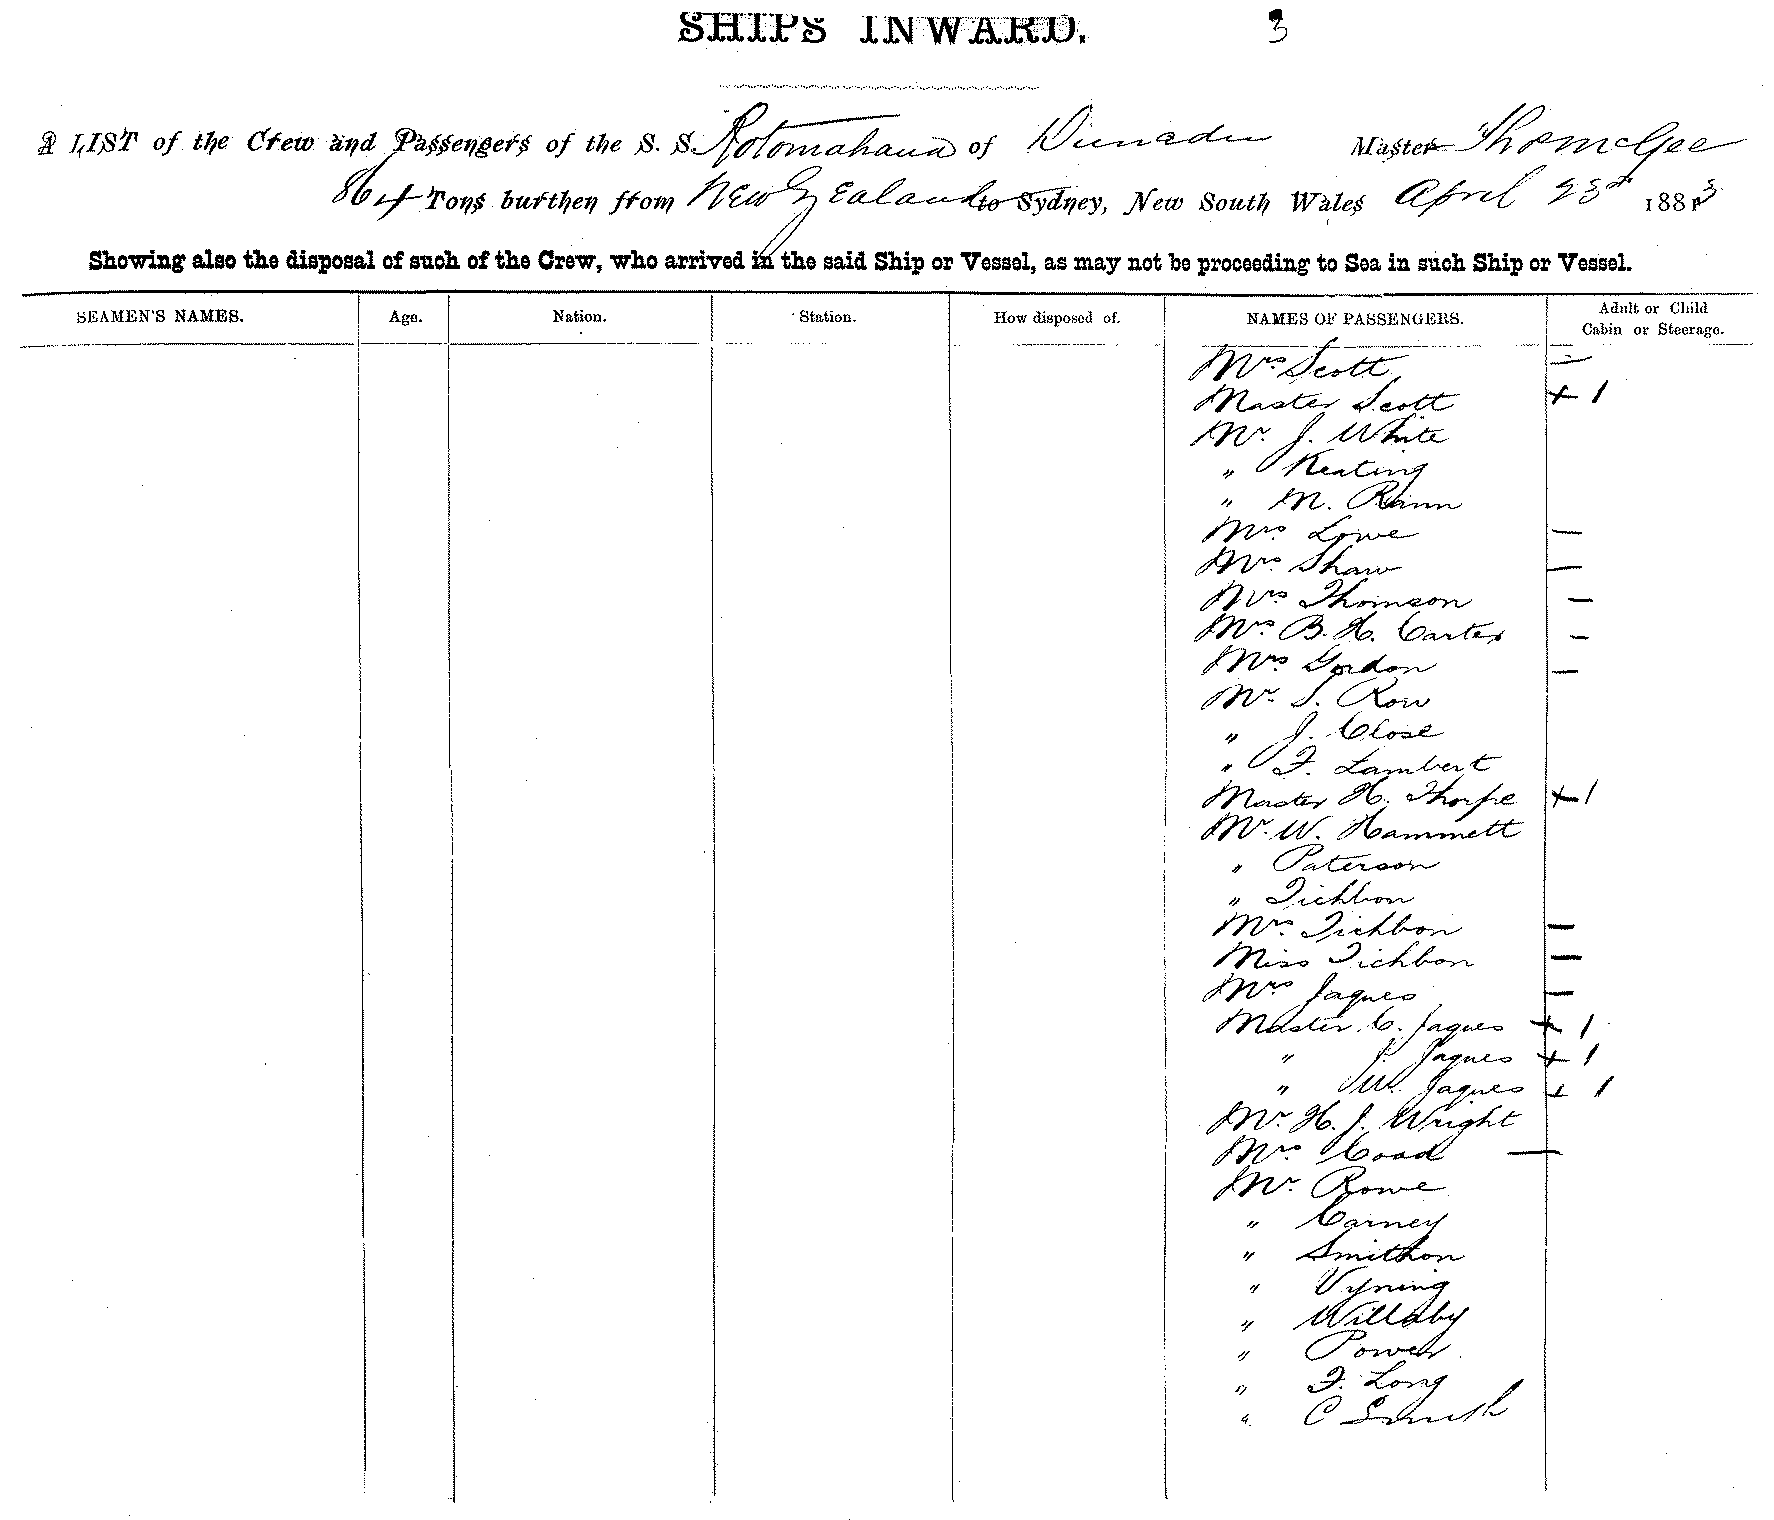 SHIPS INWARD. 3
A LIST of the Crew and Passengers of the S. S. Rotomahana of Dunedin Master Thos McGee
864 Tons burthen from New Zealand to Sydney, New South Wales April 23rd 1883
Showing also the disposal of such of the Crew, who arrived in the said Ship or Vessel, as may not be proceeding to Sea in such Ship or Vessel.
SEAMEN'S NAMES. Age. Nation. Station. How disposed of. NAMES OF PASSENGERS. Adult or Child
Cabin or Steerage.
Mrs Scott —
Master Scott + 1
Mr. J. White
" Keating
" M. Rann
Mrs Lowe —
Mrs Shaw —
Mrs Thomson —
Mrs B. H. Carter —
Mrs Gordon —
Mr. S. Row
" J. Close
" F. Lambert
Master H. Thorpe + 1
Mr. W. Hammett
" Paterson
" Tichbon
Mrs. Tichbon —
Miss Tichbon —
Mrs Jaques —
Master C. Jaques + 1
" J. Jaques + 1
" W. Jaques + 1
Mr. H. J. Wright
Mrs Coad —
Mr. Rowe
" Carney
" Smithon
" Vyning
" Willoby
" Power
" F. Long
" C Smith